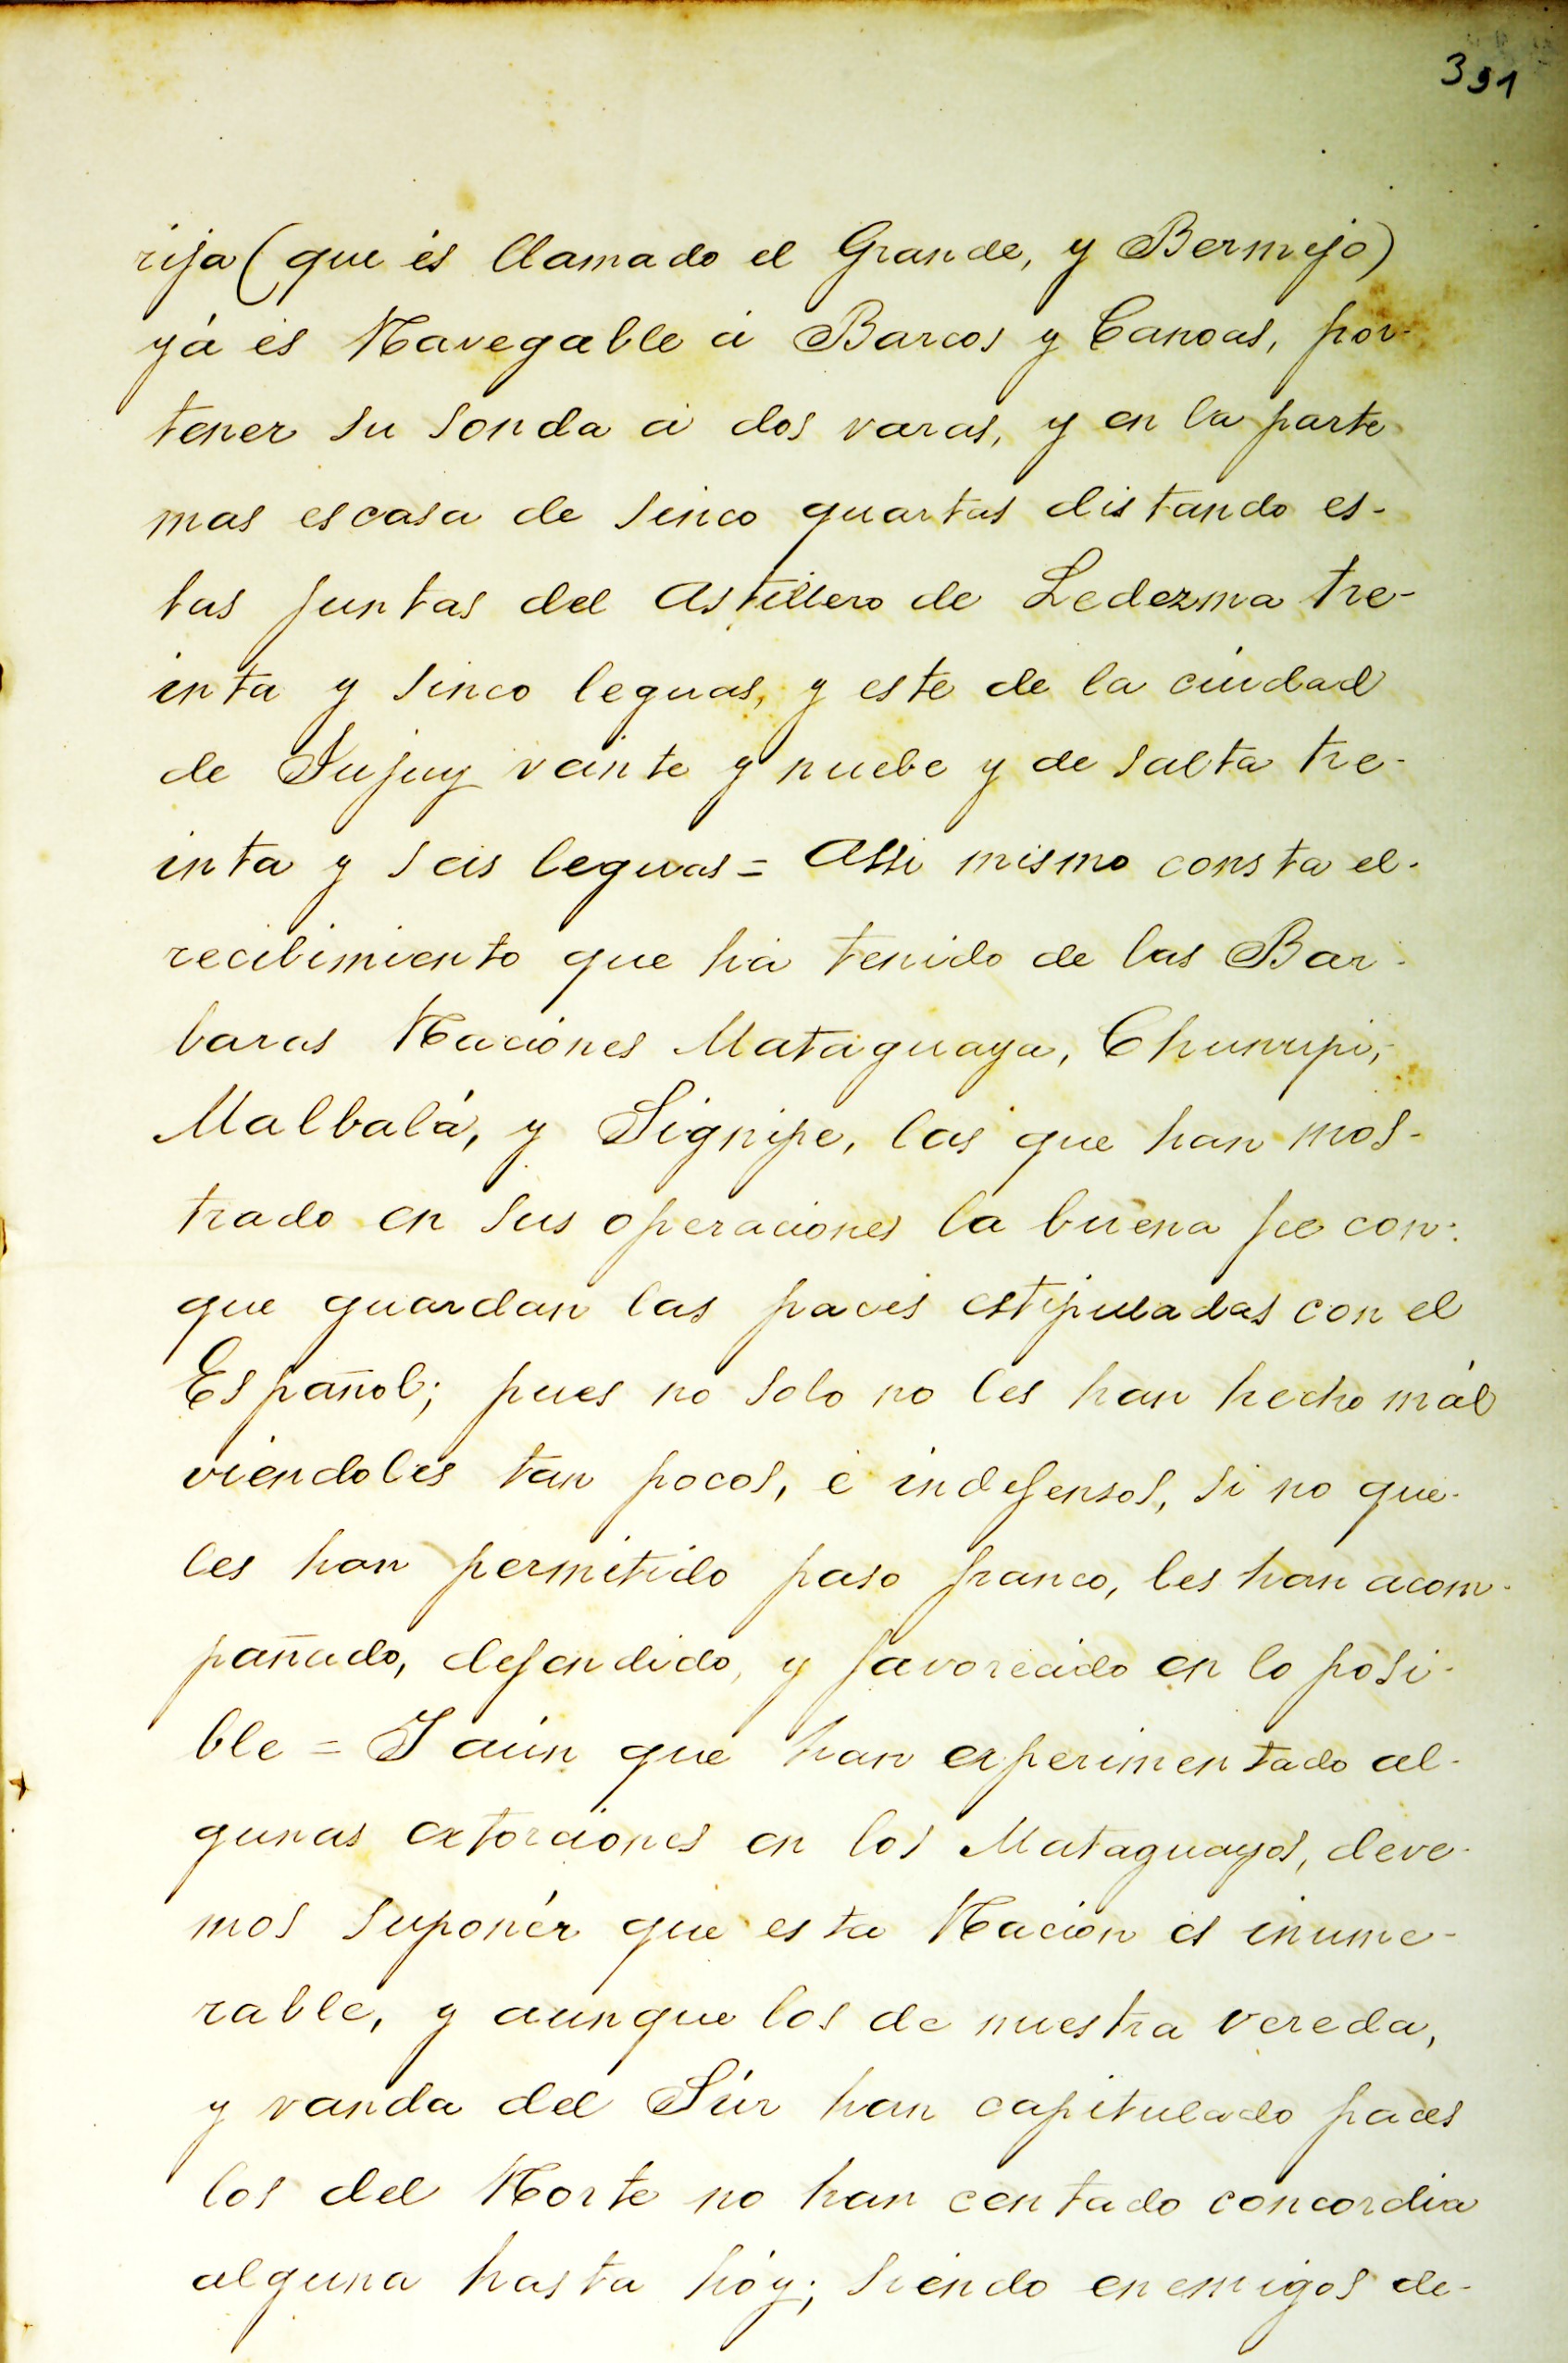 391
rija (que és llamado el Grande, y Bermejo)
yá és Navegable á Barcos y Canoas, por-
tener su sonda á dos varas, y en la parte
mas escasa de sinco quartas distando es-
tas juntas del Astillero de Ledezma tre-
inta y sinco leguas, y este de la ciudad
de Jujuy veinte y nuebe y de salta tre-
inta y seis leguas = Assi mismo consta el-
recibimiento que há tenido de las Bar-
baras Naciones Mataguaya, Chunupi,
Malbalá, y Signipe, las que han mos-
trado en sus operaciones la buena fee con-
que guardan las paces estipuladas con el
Español; pues no solo no les han hecho mál
viendoles tan pocos, é indefensos, si no que-
les han permitido paso franco, les han acom-
pañado, defendido, y favorecido en lo posi-
ble = I aún que han experimentado al-
gunas extorciones en los Mataguayos, deve-
mos suponér que esta Nacion es inume-
rable, y aunque los de nuestra vereda,
y vanda del Súr han capitulado paces
los del Norte no han centado concordia
alguna hasta hóy; siendo enemigos de-